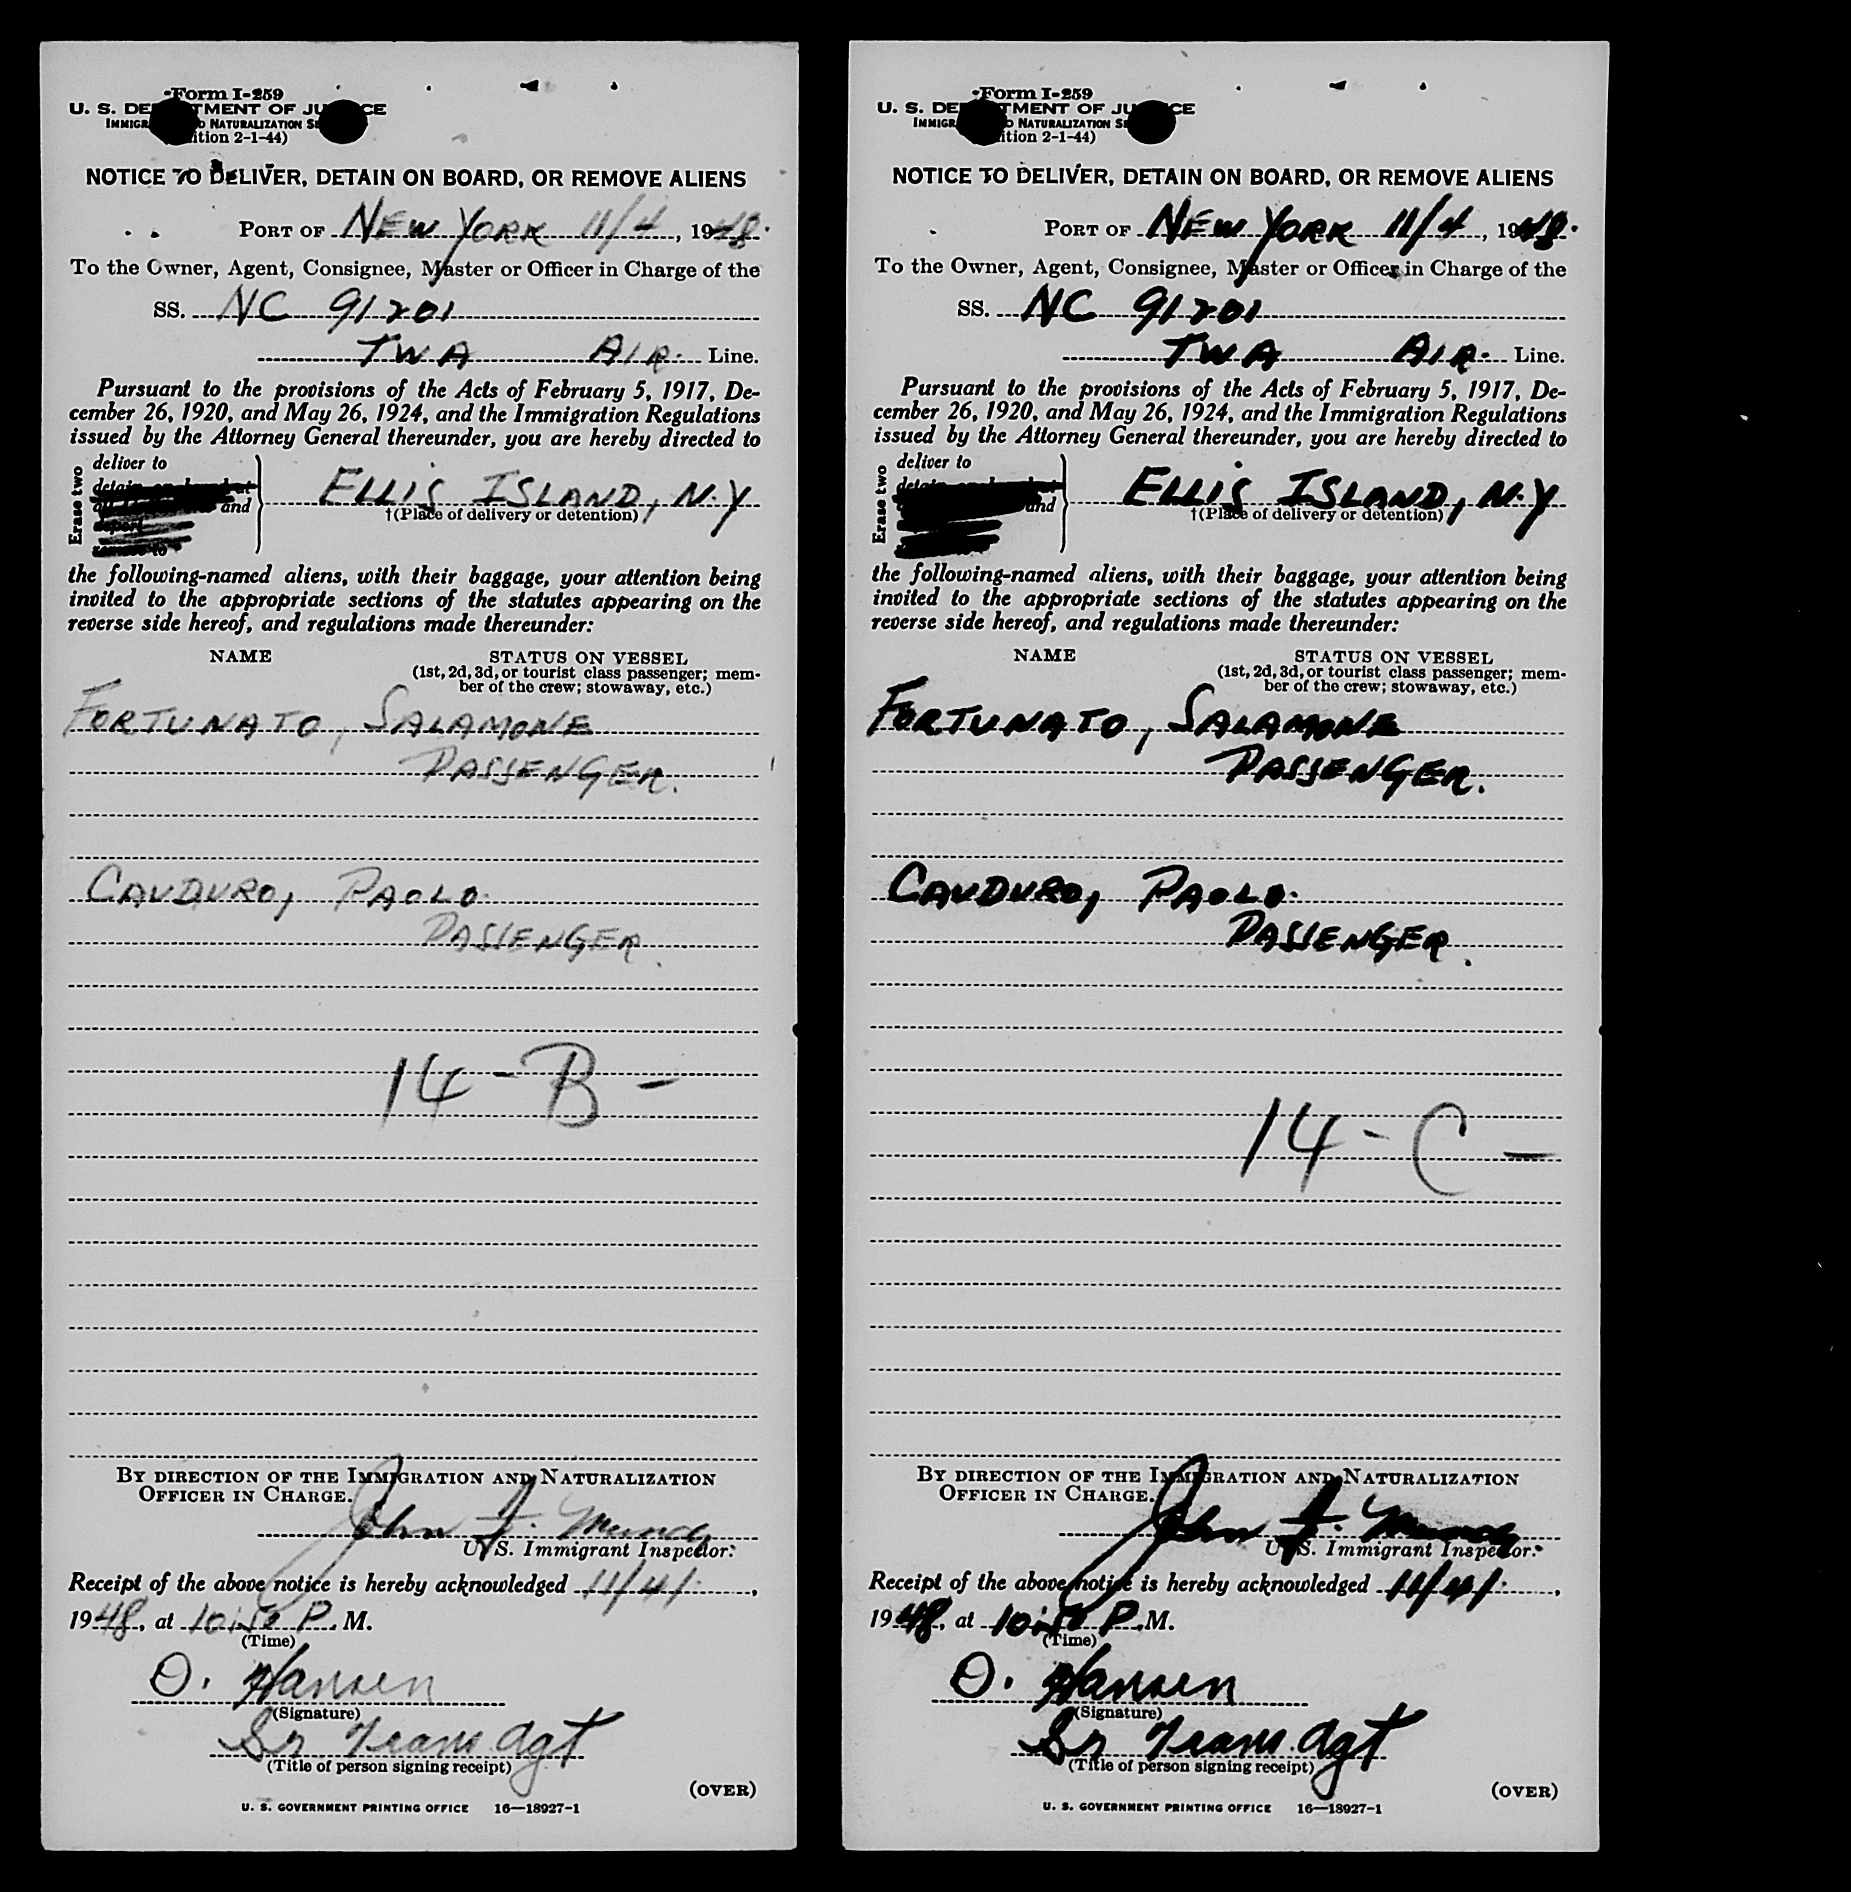 Form I-259
U. S. DE TMENT OF JU CE
IMMIGR NATURALIZATION S
ition 2-1-44)
NOTICE TO DELIVER, DETAIN ON BOARD, OR REMOVE ALIENS
PORT OF NEW YORK 11/4, 1948.
To the Owner, Agent, Consignee, Master or Officer in Charge of the
SS. NC 91201
TWA AIR. Line.
Pursuant to the provisions of the Acts of February 5, 1917, De-
cember 26, 1920, and May 26, 1924, and the Immigration Regulations
issued by the Attorney General thereunder, you are hereby directed to
Erase two
deliver to
and
ELLIS ISLAND, N.Y
†(Place of delivery or detention)
the following-named aliens, with their baggage, your attention being
invited to the appropriate sections of the statutes appearing on the
reverse side hereof, and regulations made thereunder:
NAME STATUS ON VESSEL
(1st, 2d, 3d, or tourist class passenger; mem-
ber of the crew; stowaway, etc.)
FORTUNATO, SALAMONE
PASSENGER.
CAUDURO, PAOLO.
PASSENGER.
14-B-
BY DIRECTION OF THE IMMIGRATION AND NATURALIZATION
OFFICER IN CHARGE.
John F.
U. S. Immigrant Inspector.
Receipt of the above notice is hereby acknowledged 11/4/,
1948, at 10:50 P.M.
(Time)
O. Hansen
(Signature)
Sr Trans. Agt
(Title of person signing receipt)
(OVER)
U. S. GOVERNMENT PRINTING OFFICE 16—18927-1
Form I-259
U. S. DE TMENT OF JU CE
IMMIGR NATURALIZATION S
ition 2-1-44)
NOTICE TO DELIVER, DETAIN ON BOARD, OR REMOVE ALIENS
PORT OF NEW YORK 11/4, 1948.
To the Owner, Agent, Consignee, Master or Officer in Charge of the
SS. NC 91201
TWA AIR. Line.
Pursuant to the provisions of the Acts of February 5, 1917, De-
cember 26, 1920, and May 26, 1924, and the Immigration Regulations
issued by the Attorney General thereunder, you are hereby directed to
Erase two
deliver to
and
ELLIS ISLAND, N.Y
†(Place of delivery or detention)
the following-named aliens, with their baggage, your attention being
invited to the appropriate sections of the statutes appearing on the
reverse side hereof, and regulations made thereunder:
NAME STATUS ON VESSEL
(1st, 2d, 3d, or tourist class passenger; mem-
ber of the crew; stowaway, etc.)
FORTUNATO, SALAMONE
PASSENGER.
CAUDURO, PAOLO.
PASSENGER.
14-C-
BY DIRECTION OF THE IMMIGRATION AND NATURALIZATION
OFFICER IN CHARGE.
John F.
U. S. Immigrant Inspector.
Receipt of the above notice is hereby acknowledged 11/4/,
1948, at 10:50 P.M.
(Time)
O. Hansen
(Signature)
Sr Trans. Agt
(Title of person signing receipt)
(OVER)
U. S. GOVERNMENT PRINTING OFFICE 16—18927-1